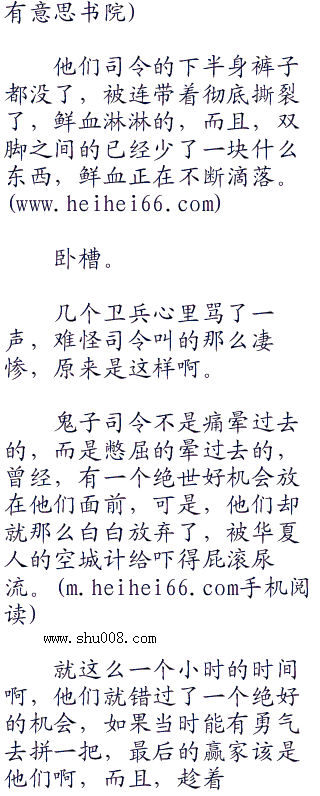 有意思书院)
他们司令的下半身裤子
都没了，被连带着彻底撕裂
了，鲜血淋淋的，而且，双
脚之间的已经少了一块什么
东西，鲜血正在不断滴落。
(www.heihei66.com)
卧槽。
几个卫兵心里骂了一
声，难怪司令叫的那么凄
惨，原来是这样啊。
鬼子司令不是痛晕过去
的，而是憋屈的晕过去的，
曾经，有一个绝世好机会放
在他们面前，可是，他们却
就那么白白放弃了，被华夏
人的空城计给吓得屁滚尿
流。(m.heihei66.com手机阅
读)
www.shu008.com
就这么一个小时的时间
啊，他们就错过了一个绝好
的机会，如果当时能有勇气
去拼一把，最后的赢家该是
他们啊，而且，趁着